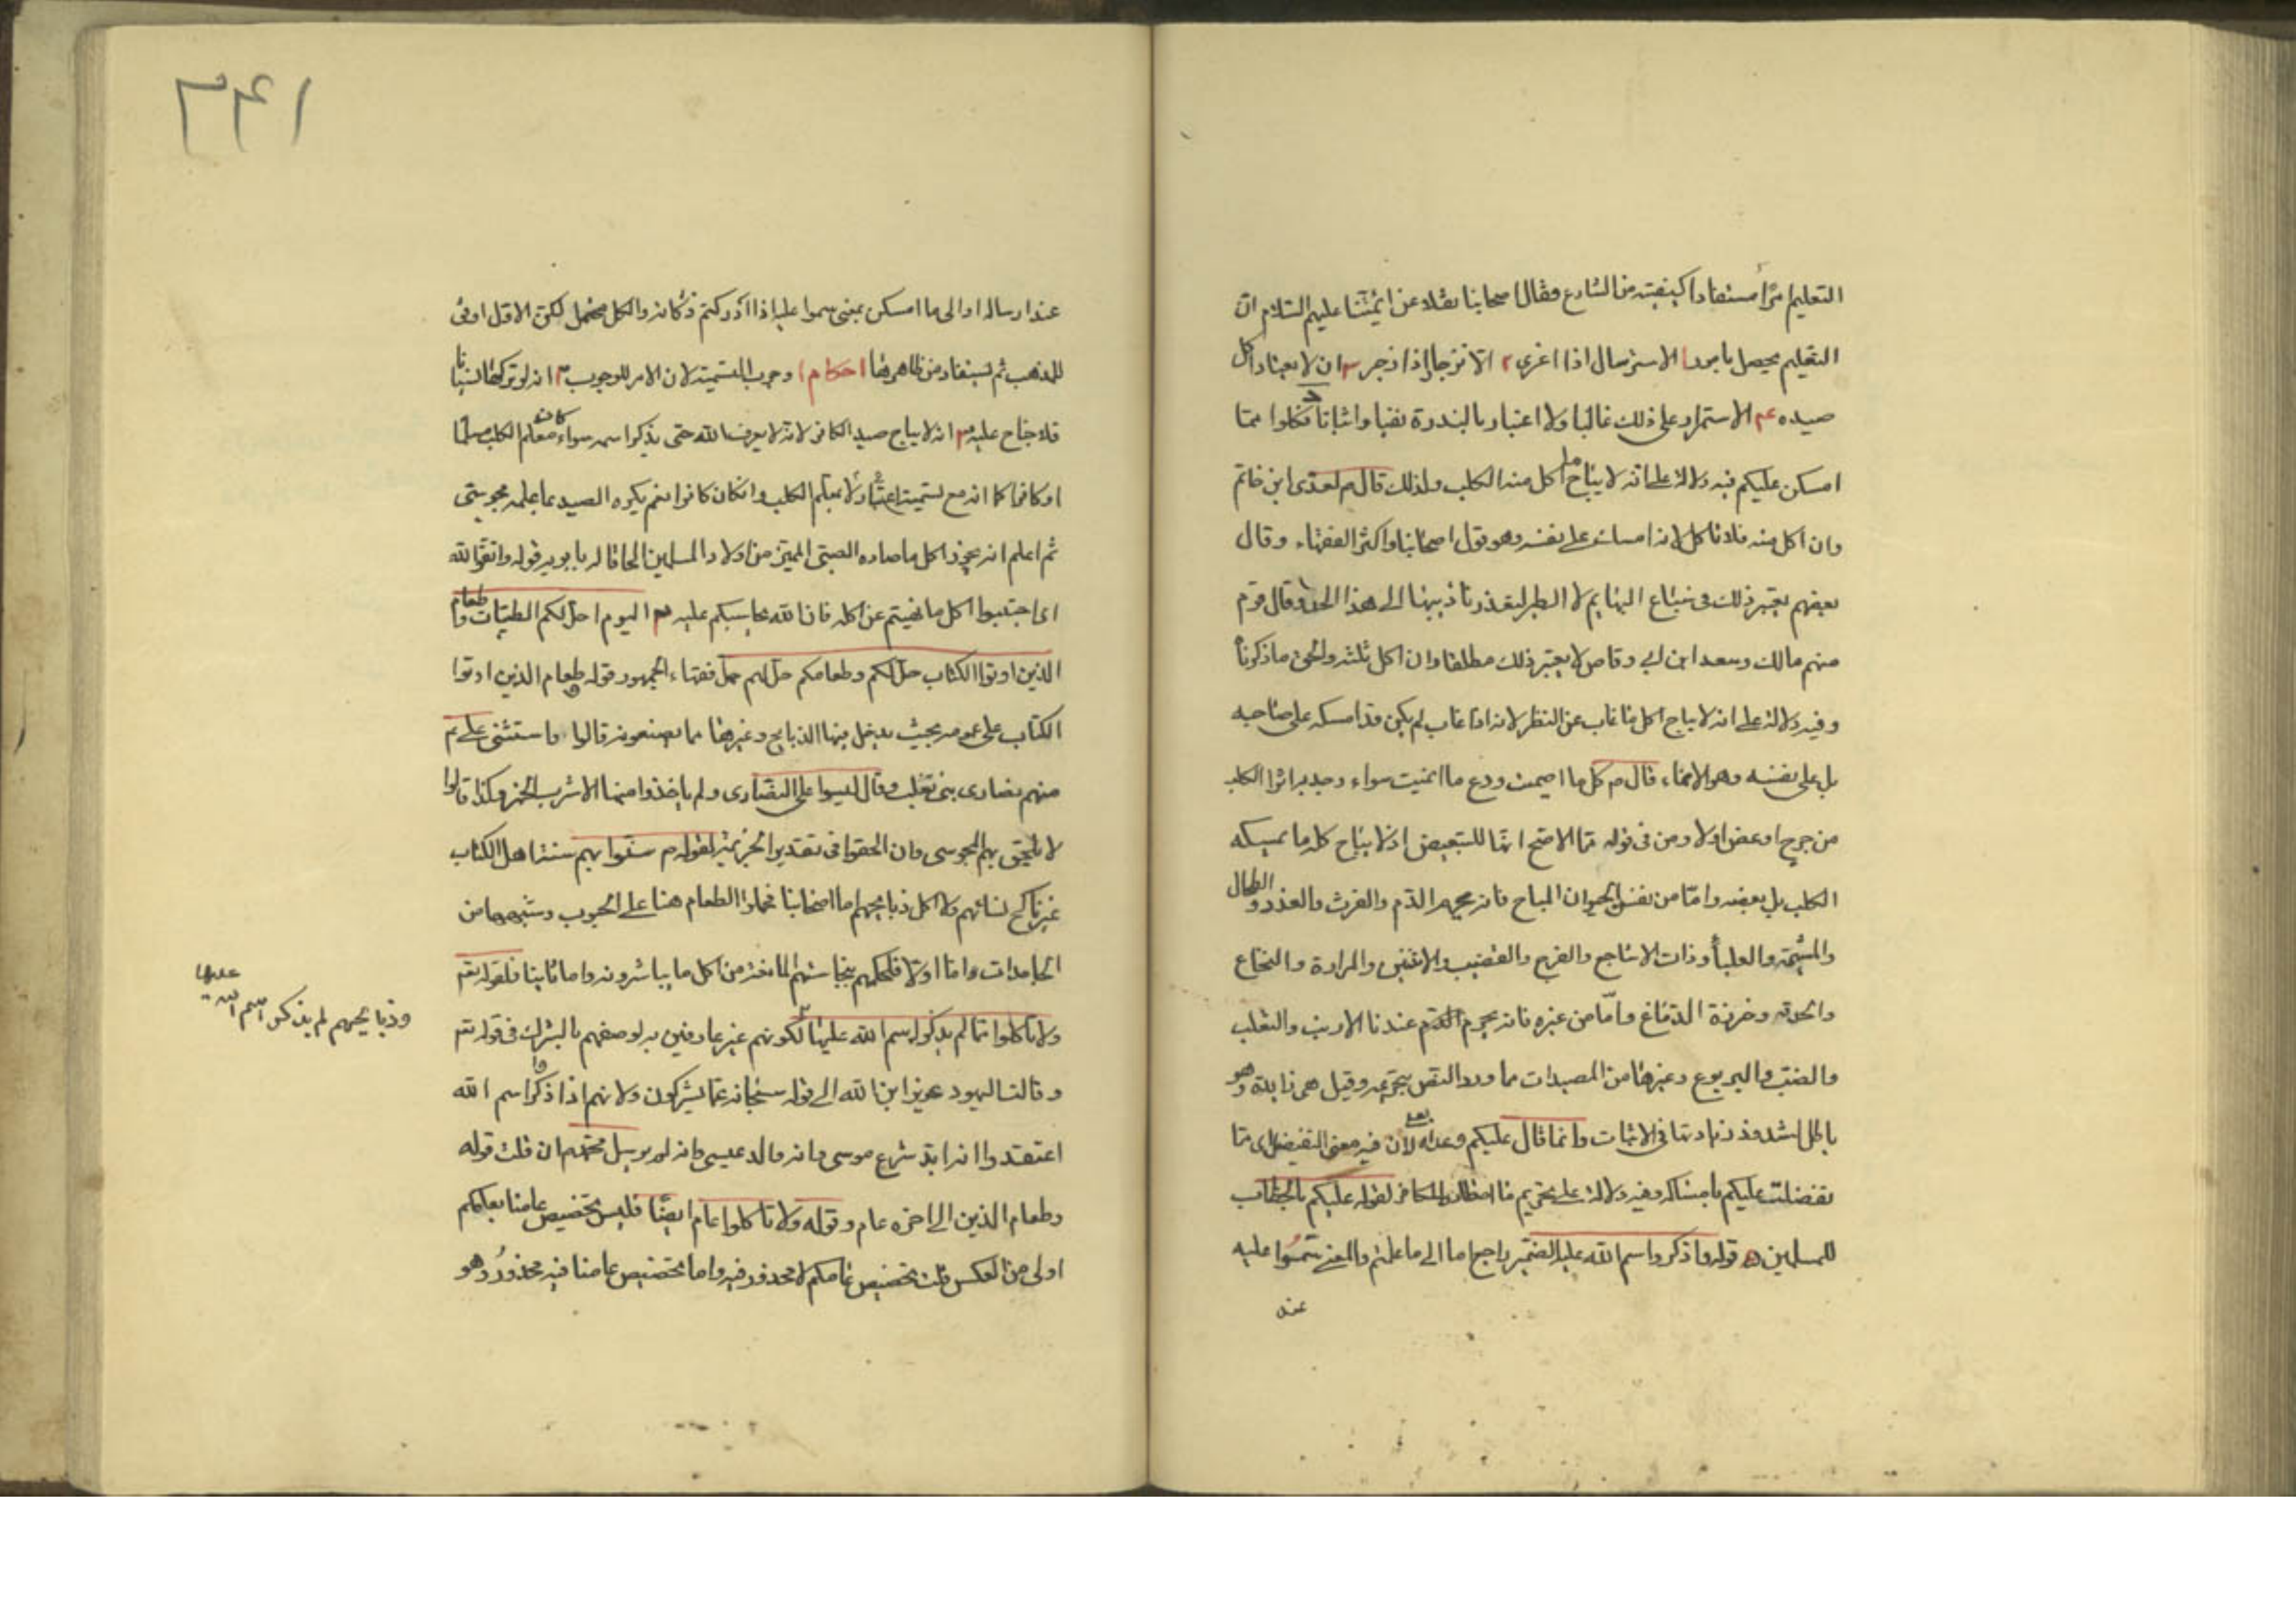 التعليم امرًا مستفادا كيفيته من الشارع وقال اصحابنا نقلا عن ائمتنا عليهم السلام ان
التعليم يحصل بامور ا الاسترسال اذا اغرى ٢ الانزجار اذا زجر ٣ ان لا يعتاد اكل
صيده ع‍م الاستمرار على ذلك غالبا ولا اعتبار بالندرة نفيا واثباتا د فكلوا مما
امسكن عليكم فيه دلالة على انه لا يباح ما اكل منه الكلب ولذلك قال م لعدى ابن حاتم
وان اكل منه فلا تاكل لانه امسك على نفسه وهو قول اصحابنا واكثر الفقهاء وقال
بعضهم يعتبر ذلك فى سباع البهايم لا الطير لتعذر تاديبها الى هذا الحد وقال قوم
منهم مالك وسعد ابن ابى وقاص لا يعتبر ذلك مطلقا وان اكل ثلثه والحق ما ذكرناه
وفيه دلالة على انه لا يباح اكل ما غاب عن النظر لانه اذا غاب لم يكن قد امسكه على صاحبه
بل على نفسه وهو الانماء قال م كل ما اصميت ودع ما انميت سواء وجد به اثر الكلب
من جرح او عض او لا ومن فى قوله مما الاصح انها للتبعيض اذ لا يباح كل ما يمسكه
الكلب بل بعضه واما من نفس الحيوان المباح فانه يحرم الدم والفرث والغدد والطحال
والمشيمة والعلبا وذات الاشاجع والفرج والقضيب والانثيين والمرارة والنخاع
والحدقة وخرزة الدماغ واما من غيره فانه يحرم عندنا الارنب والثعلب
والضب واليربوع وغيرها من المصيدات مما ورد النص بتحريمه وقيل هى زايدة وهو
باطل لشذوذ زيادتها فى الاثبات وانما قال عليكم وعداه بعلى لان فيه معنى التفضل اى مما
تفضلت عليكم بامساكه وفيه دلالة على تحريم ما اصطاده الكافر لقوله عليكم بالخطاب
للمسلمين ه قوله واذكروا اسم الله عليه الضمير راجع اما الى ما علمتم والمعنى سموا عليه
عند
٣٤١
عند ارساله او الى ما امسكن بمعنى سموا عليه اذا ادركتم ذكاته والكل محتمل لكن الاول اوفق
للمذهب ثم يستفاد من ظاهرها احكام ا وجوب التسمية لان الامر للوجوب ٢ انه لو تركها نسيانا
فلا جناح عليه ٣ انه لا يباح صيد الكافر لانه لا يعرف الله حتى يذكر اسمه سواء كان معلم الكلب مسلما
او كافرا كما انه مع تسميته لا اعتبار بمعلم الكلب وان كان كافرا نعم يكره الصيد بما علمه مجوسى
ثم اعلم انه يجوز اكل ما صاده الصبى المميز من اولاد المسلمين الحاقا له بابويه قوله واتقوا الله
اى اجتنبوا اكل ما نهيتم عن اكله فان الله يحاسبكم عليه اليوم احل لكم الطيبات وطعام
الذين اوتوا الكتاب حل لكم وطعامكم حل لهم حمل فقهاء الجمهور قوله وطعام الذين اوتوا
الكتاب على عمومه بحيث يدخل فيها الذبايح وغيرها مما يصنعونه قالوا واستثنى على م
منهم نصارى بنى تغلب وقال ليسوا على النصارى ولم ياخذوا منها الا شرب الخمر وكذا قالوا
لا يلحق بهم المجوسى وان الحقوا فى تقدير الجزية لقوله م سنوا بهم سنة اهل الكتاب
غير ناكحى نسائهم ولا اكلى ذبايحهم اما اصحابنا فحملوا الطعام هنا على الحبوب وشبهها من
الجامدات اما اولا فلحكمهم بنجاستهم المانعة من اكل ما يباشرونه واما ثانيا فلقوله تع‍
ولا تاكلوا مما لم يذكر اسم الله عليه لكونهم غير عارفين به لوصفهم بالشرك فى قوله تع‍
وقالت اليهود عزير ابن الله الى قوله سبحانه عما يشركون ولانهم اذا ذكروا اسم الله
اعتقدوا انه ابد شرع موسى وانه والد عيسى وانه لم يرسل محمدا م ان قلت قوله
وطعام الذين الى اخره عام وقوله ولا تاكلوا عام ايضا فليس تخصيص عامنا بعامكم
اولى من العكس قلت تخصيص عامكم لا محذور فيه واما تخصيص عامنا فيه محذور وهو
وذبايحهم لم يذكر اسم الله عليها